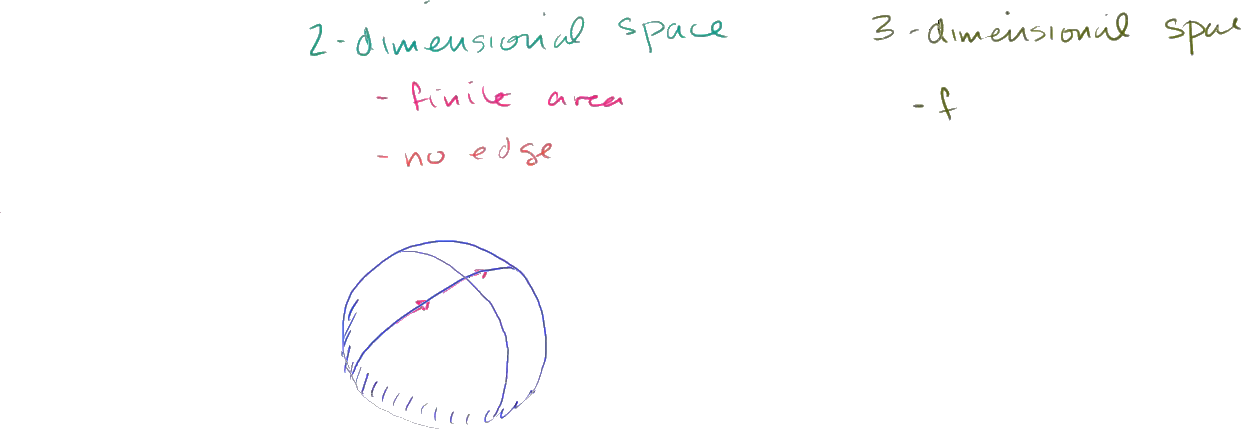 2-dimensional space
- finite area
- no edge
3-dimensional spac
- f